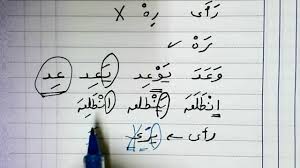 رَأَى رِهْ X
رَهْ ✓
وَعَدَ يَوْعِد يَعِد عِد
اِنْطَلَقَ يَنْطَلِق اِنْطَلِق
رأى ← يَرَى